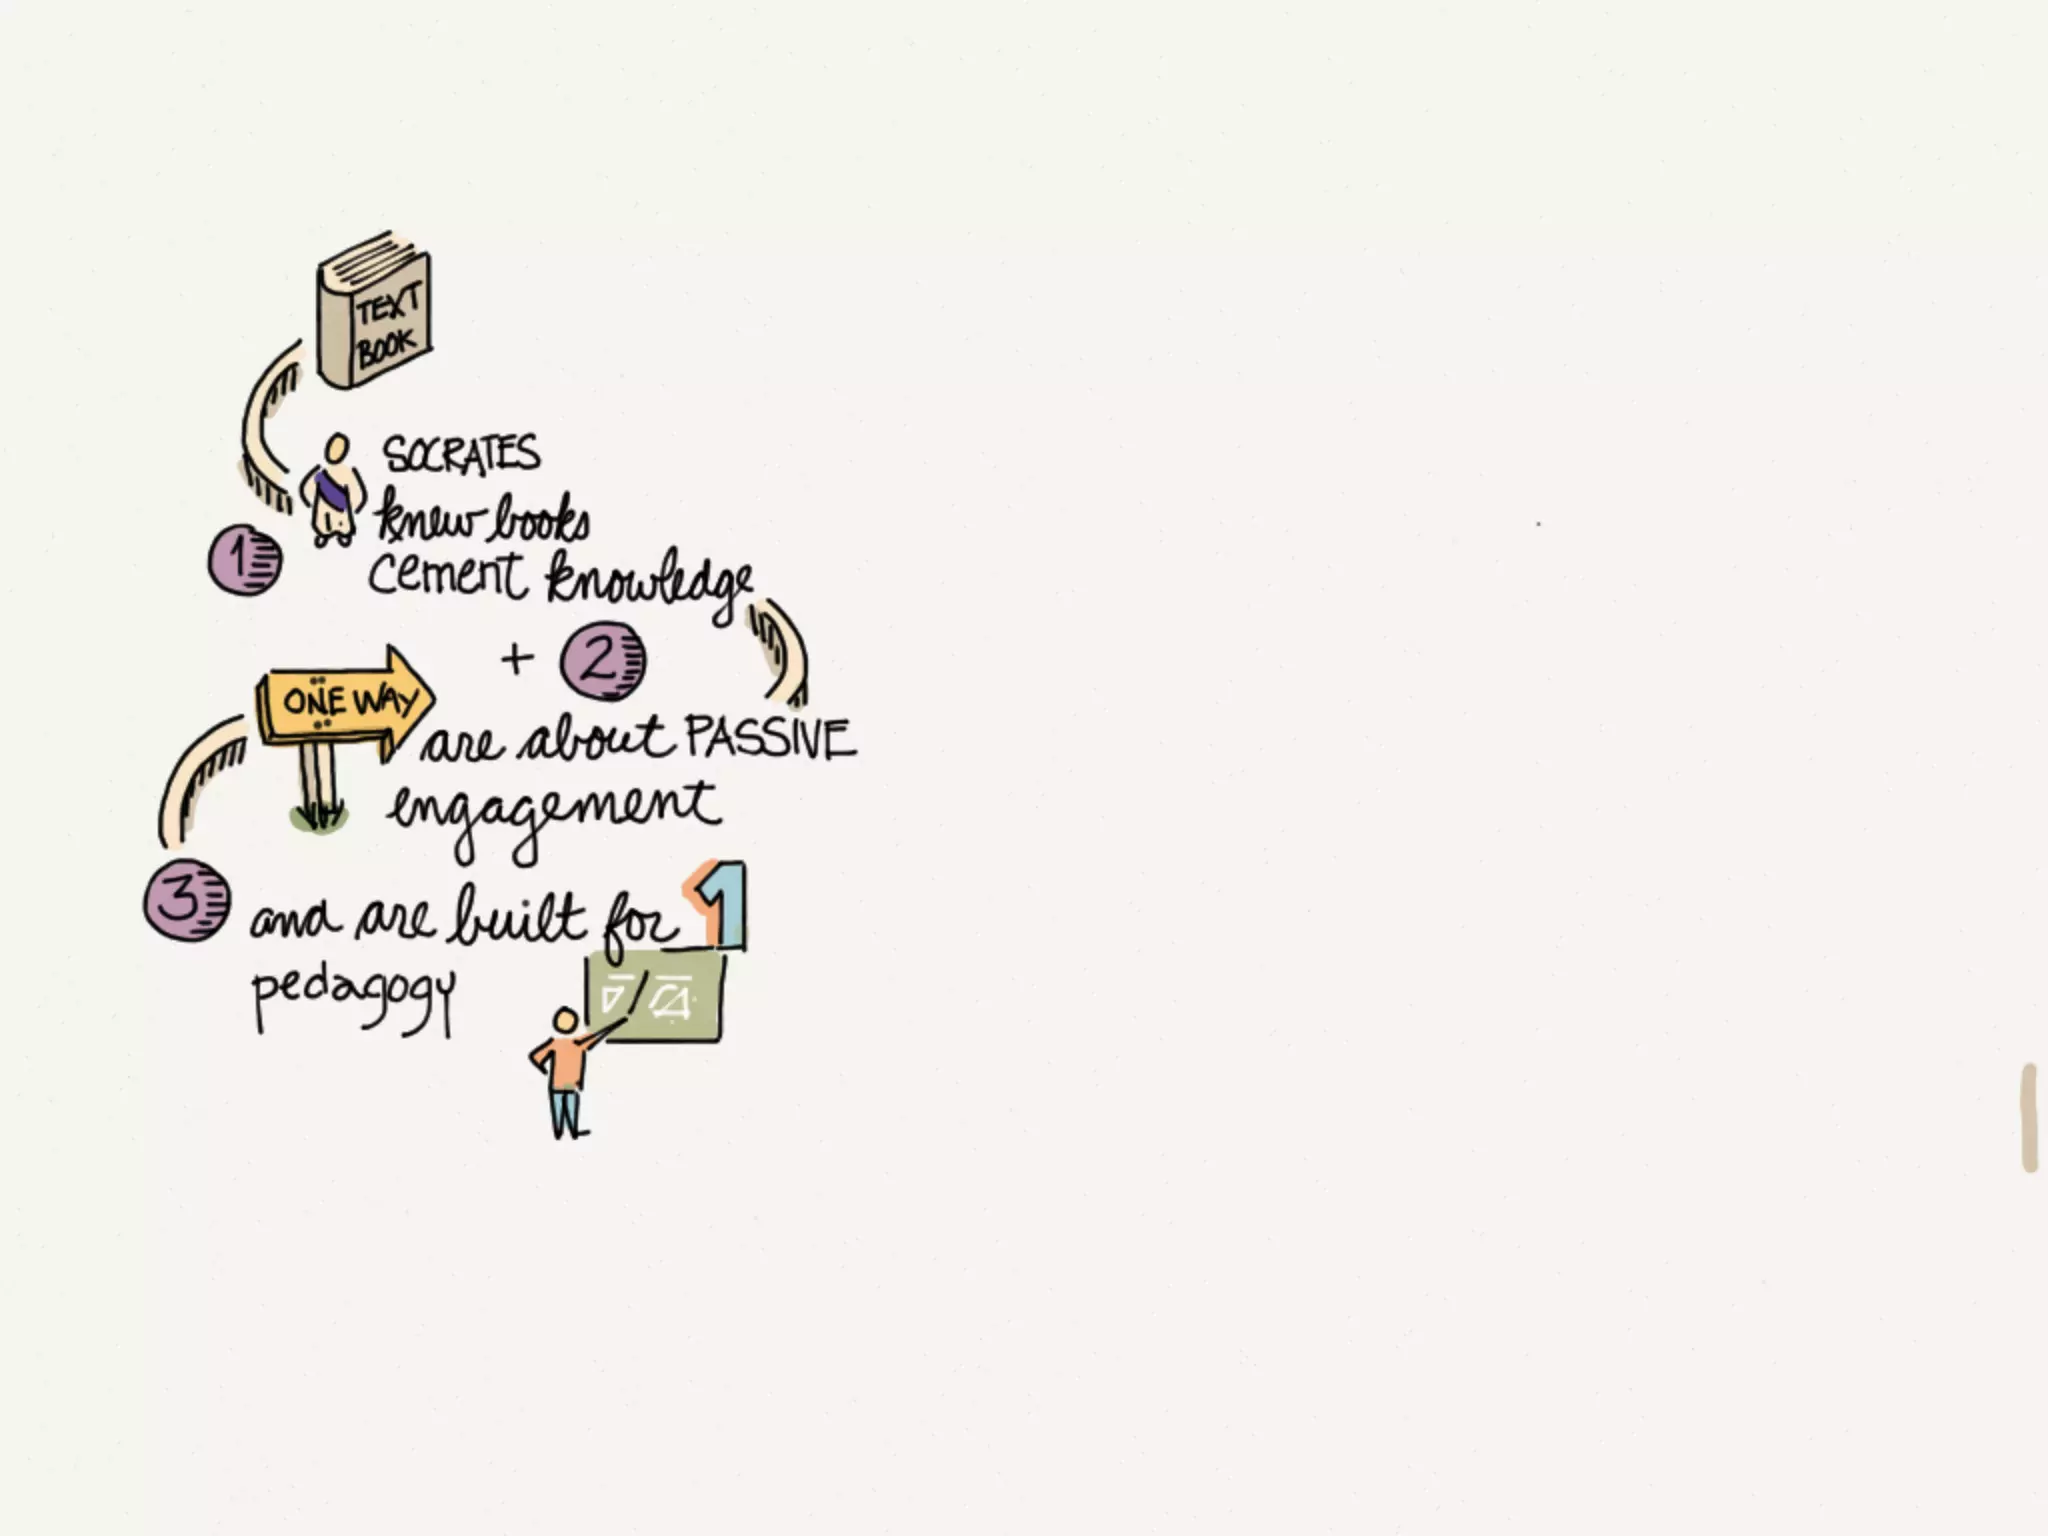 TEXT
BOOK
SOCRATES
knew books
1
cement knowledge
+ 2
ONE WAY
are about PASSIVE
engagement
3 and are built for 1
pedagogy